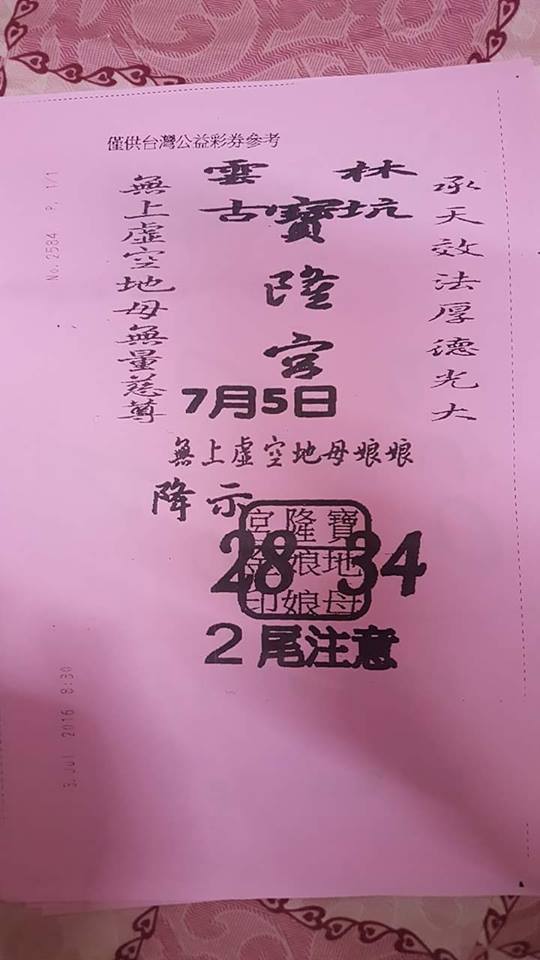 僅供台灣公益彩券參考
雲林
古坑
寶隆宮
承天效法厚德光大
無上虛空地母無量慈尊
7月5日
無上虛空地母娘娘
降示
寶隆宮
地母娘娘
印
28 34
2尾注意
No.2584 P. 1/1
Jul 2016 8:30